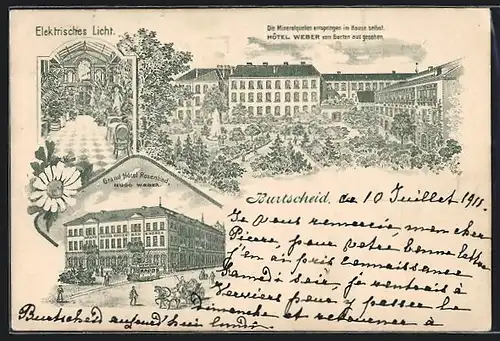 Elektrisches Licht.
Die Mineralquellen entspringen im Hause selbst.
HÔTEL WEBER vom Garten aus gesehen.
Grand Hôtel Rosenbad.
HUGO WEBER.
Burtscheid, le 10 Juillet 1911.
Je vous remercie, mon cher
Pierre, pour votre bonne lettre
J'en ai pris connaissance
Samedi soir, je rentrais à
Verviers pour y passer le
Dimanche et retourner à
Burtscheid aujourd'hui lundi.